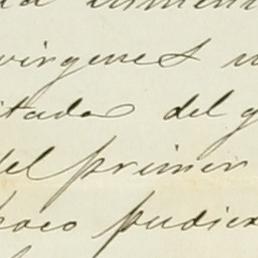 virgenes
itados del g
del primer
poco pudier